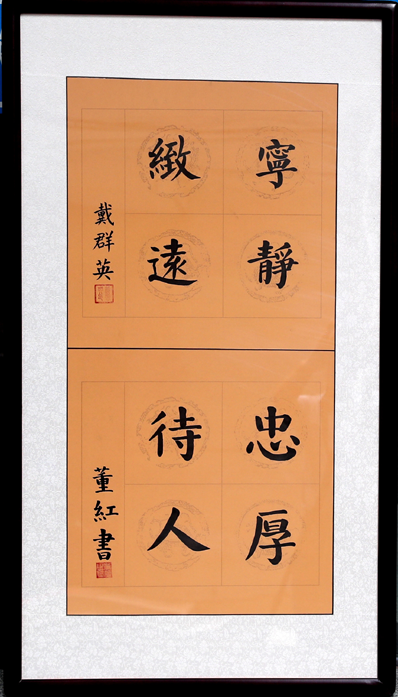 寧靜
緻遠
戴群英
忠厚
待人
董紅書